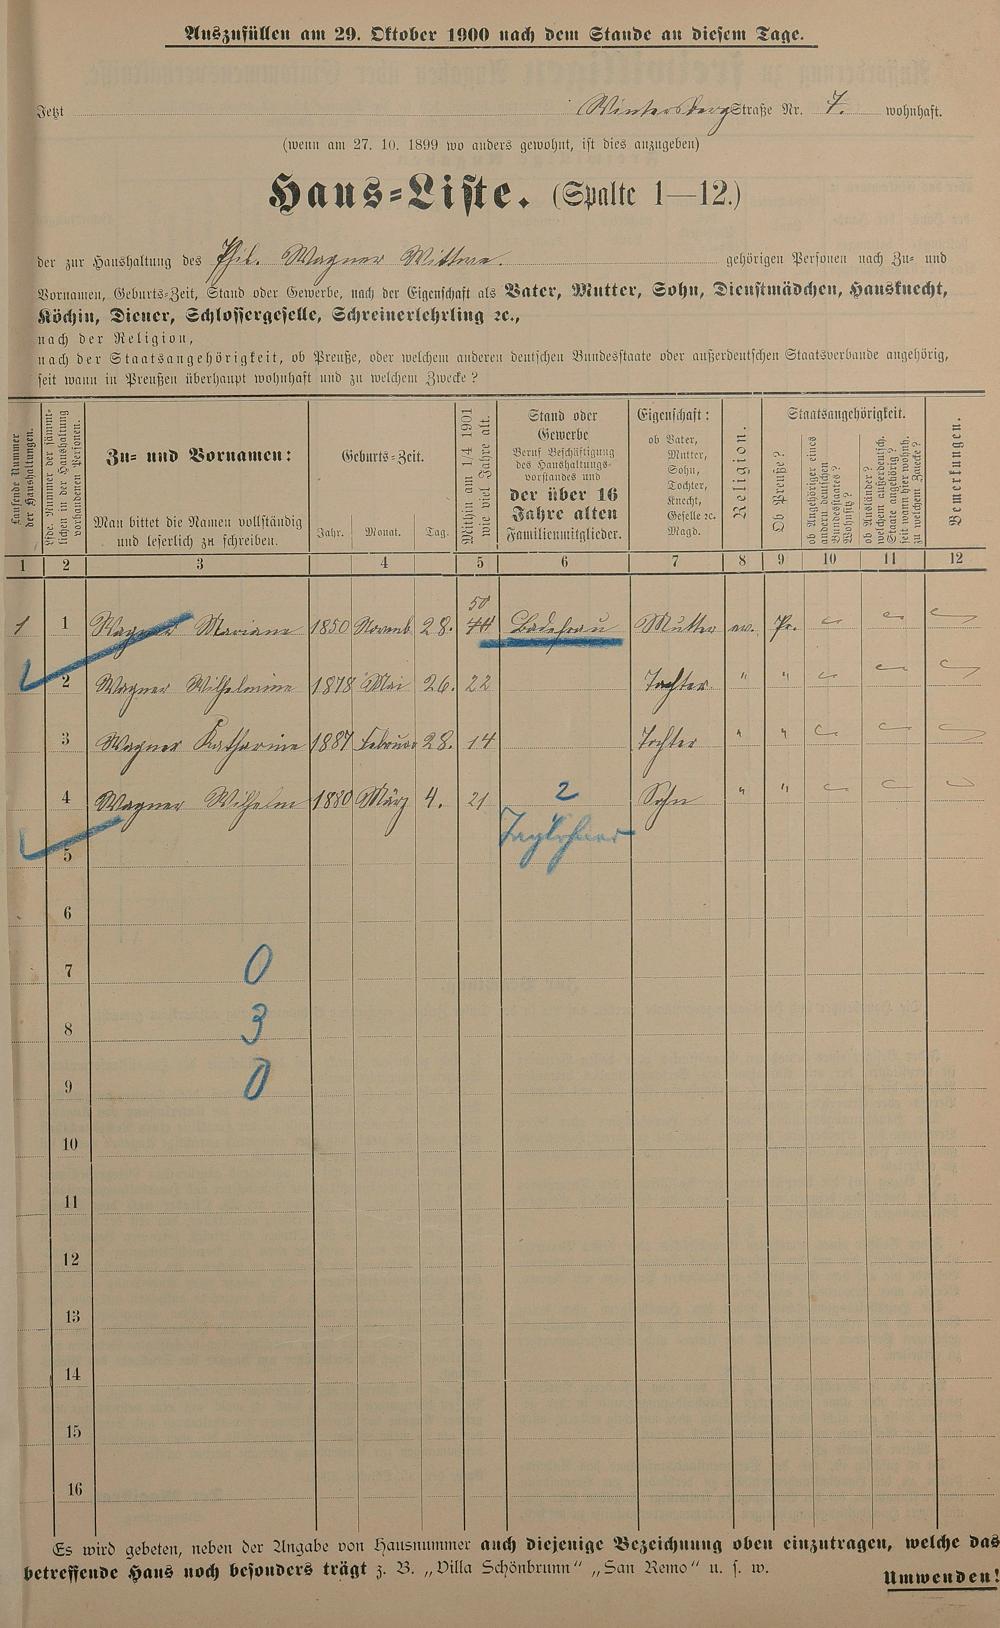 Auszufüllen am 29. Oktober 1900 nach dem Stande an diesem Tage.
Jetzt Wintersberg Straße Nr. 7. wohnhaft.
(wenn am 27. 10. 1899 wo anders gewohnt, ist dies anzugeben)
Haus-Liste. (Spalte 1—12.)
der zur Haushaltung des Phil. Wagner Wittwe. gehörigen Personen nach Zu- und
Vornamen, Geburts-Zeit, Stand oder Gewerbe, nach der Eigenschaft als Vater, Mutter, Sohn, Dienstmädchen, Hausknecht,
Köchin, Diener, Schlossergeselle, Schreinerlehrling ꝛc.,
nach der Religion,
nach der Staatsangehörigkeit, ob Preuße, oder welchem anderen deutschen Bundesstaate oder außerdeutschen Staatsverbande angehörig,
seit wann in Preußen überhaupt wohnhaft und zu welchem Zwecke?
Laufende Nummer der Haushaltungen.
Lfde. Nummer der sämmtlichen in der Haushaltung vorhandenen Personen.
Zu- und Vornamen:
Man bittet die Namen vollständig
und leserlich zu schreiben.
Geburts-Zeit.
Jahr. Monat. Tag.
Mithin am 1/4 1901
wie viel Jahre alt.
Stand oder
Gewerbe
Beruf Beschäftigung
des Haushaltungs-
vorstandes und
der über 16
Jahre alten
Familienmitglieder.
Eigenschaft:
ob Vater,
Mutter,
Sohn,
Tochter,
Knecht,
Geselle ꝛc.
Magd.
Religion.
Staatsangehörigkeit.
Ob Preuße?
ob Angehöriger eines
andern deutschen
Bundesstaates?
Wohnsitz?
ob Ausländer?
welchem außerdeutsch.
Staate angehörig?
seit wann hier wohnh.
zu welchem Zwecke?
Bemerkungen.
1 2 3 4 5 6 7 8 9 10 11 12
50
1 1 Wagner Mariane 1850 Novemb 28. Badefrau Mutter ev. Pr.
2 Wagner Wilhelmine 1878 Mai 26. 22 Tochter " "
3 Wagner Katharine 1887 Februar 28. 14 Tochter " "
4 Wagner Wilhelm 1880 März 4. 21 2 Sohn " "
Taglöhner
5
6
7 0
8 3
9 0
10
11
12
13
14
15
16
Es wird gebeten, neben der Angabe von Hausnummer auch diejenige Bezeichnung oben einzutragen, welche das
betreffende Haus noch besonders trägt z. B. „Villa Schönbrunn" „San Remo" u. s. w.
Umwenden!